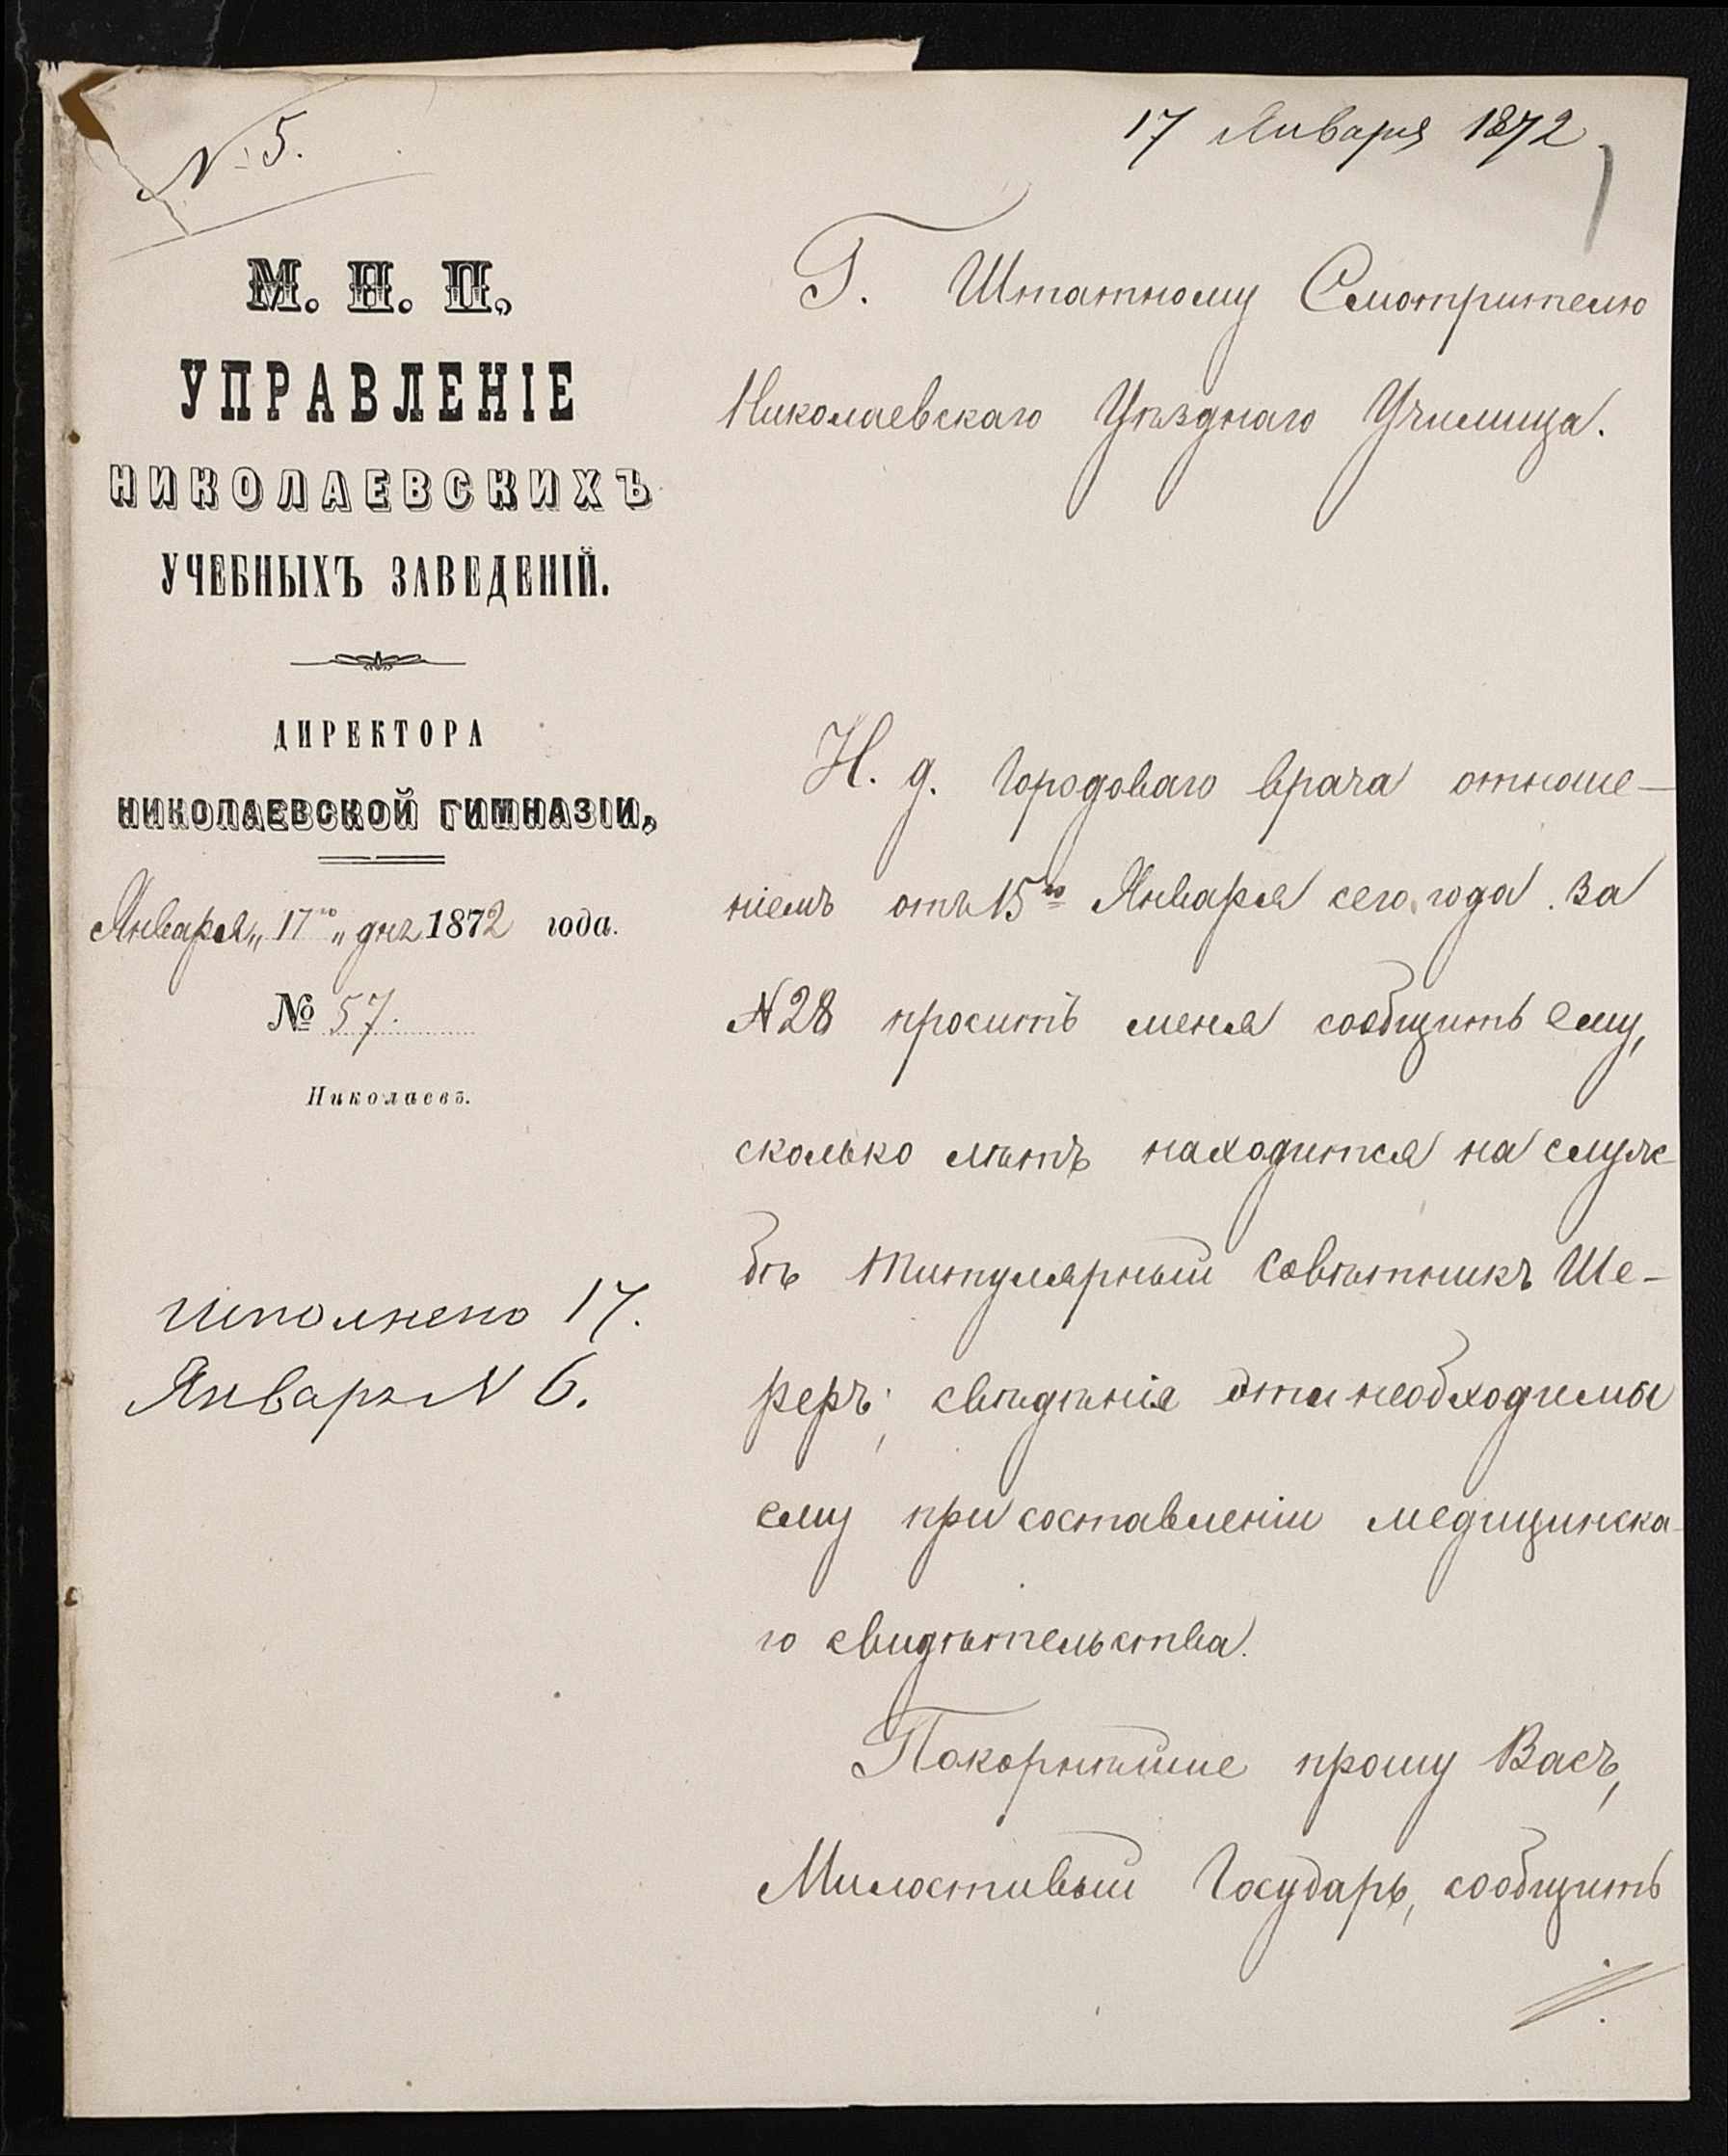 № 5.
17 Января 1872
М. Н. П.
УПРАВЛЕНІЕ
НИКОЛАЕВСКИХЪ
УЧЕБНЫХЪ ЗАВЕДЕНІЙ.
ДИРЕКТОРА
НИКОЛАЕВСКОЙ ГИМНАЗІИ,
Января „ 17го „ дня 1872 года.
№ 57.
Николаевъ.
Исполнено 17.
Января N 6.
Г. Штатному Смотрителю
Николаевскаго Уѣзднаго Училища.
И. д. Городоваго врача отноше-
ніемъ отъ 15го Января сего года за
N 28 проситъ меня сообщить ему,
сколько лѣтъ находится на служ
бѣ Титулярный Совѣтникъ Ше-
реръ; свѣдѣнія эти необходимы
ему при составленіи медицинска-
го свидѣтельства.
Покорнѣйше прошу Васъ,
Милостивый Государь, сообщить